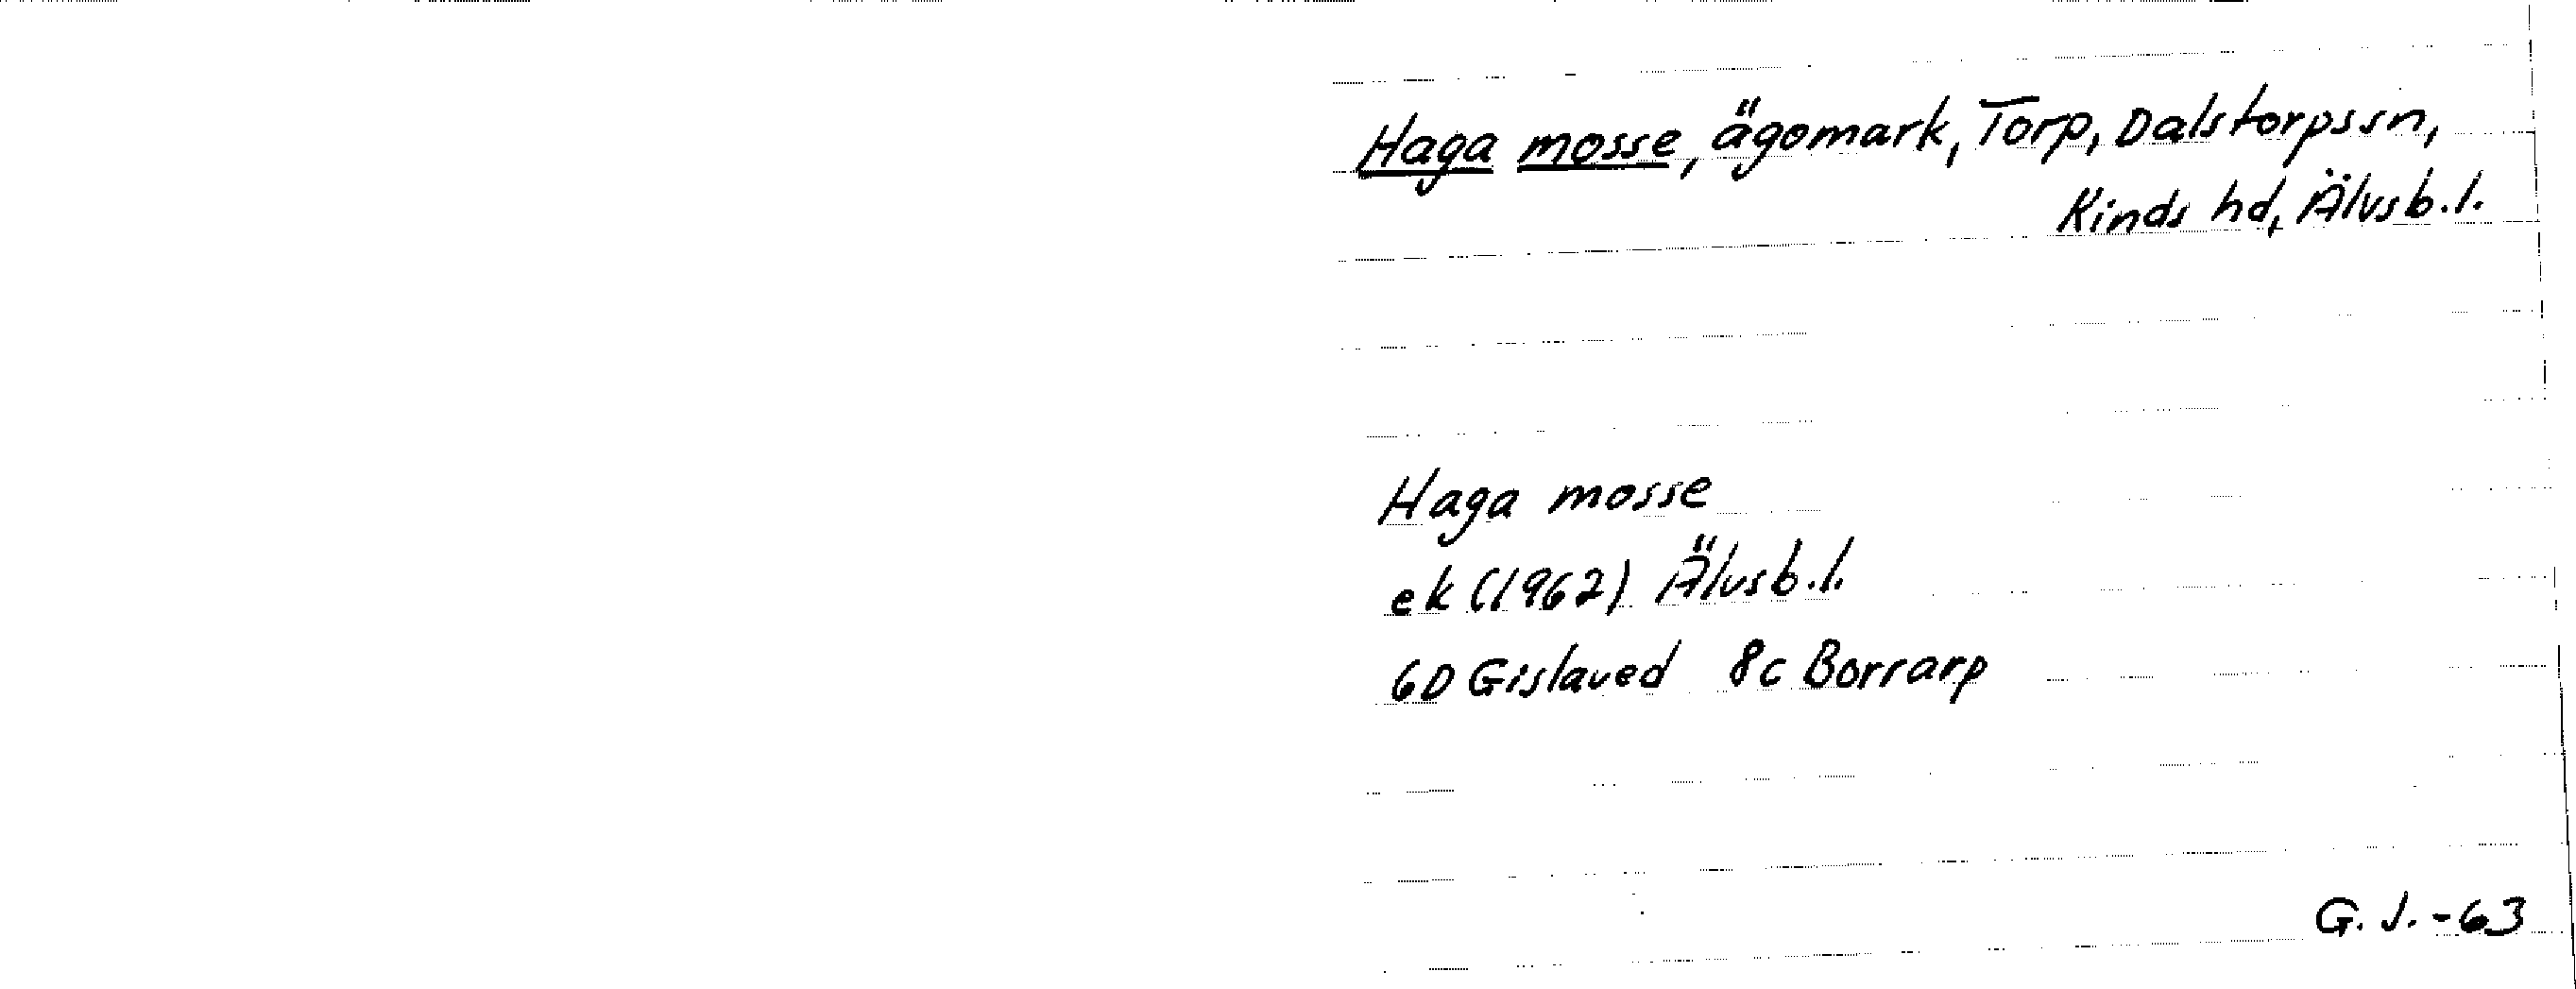 Haga mosse, ägomark, Torp, Dalstorpssn,
Kinds hd, Älvsb.l.
Haga mosse
ek (1962) Älvsb.l.
6D Gislaved 8c Borrarp
G.J.-63